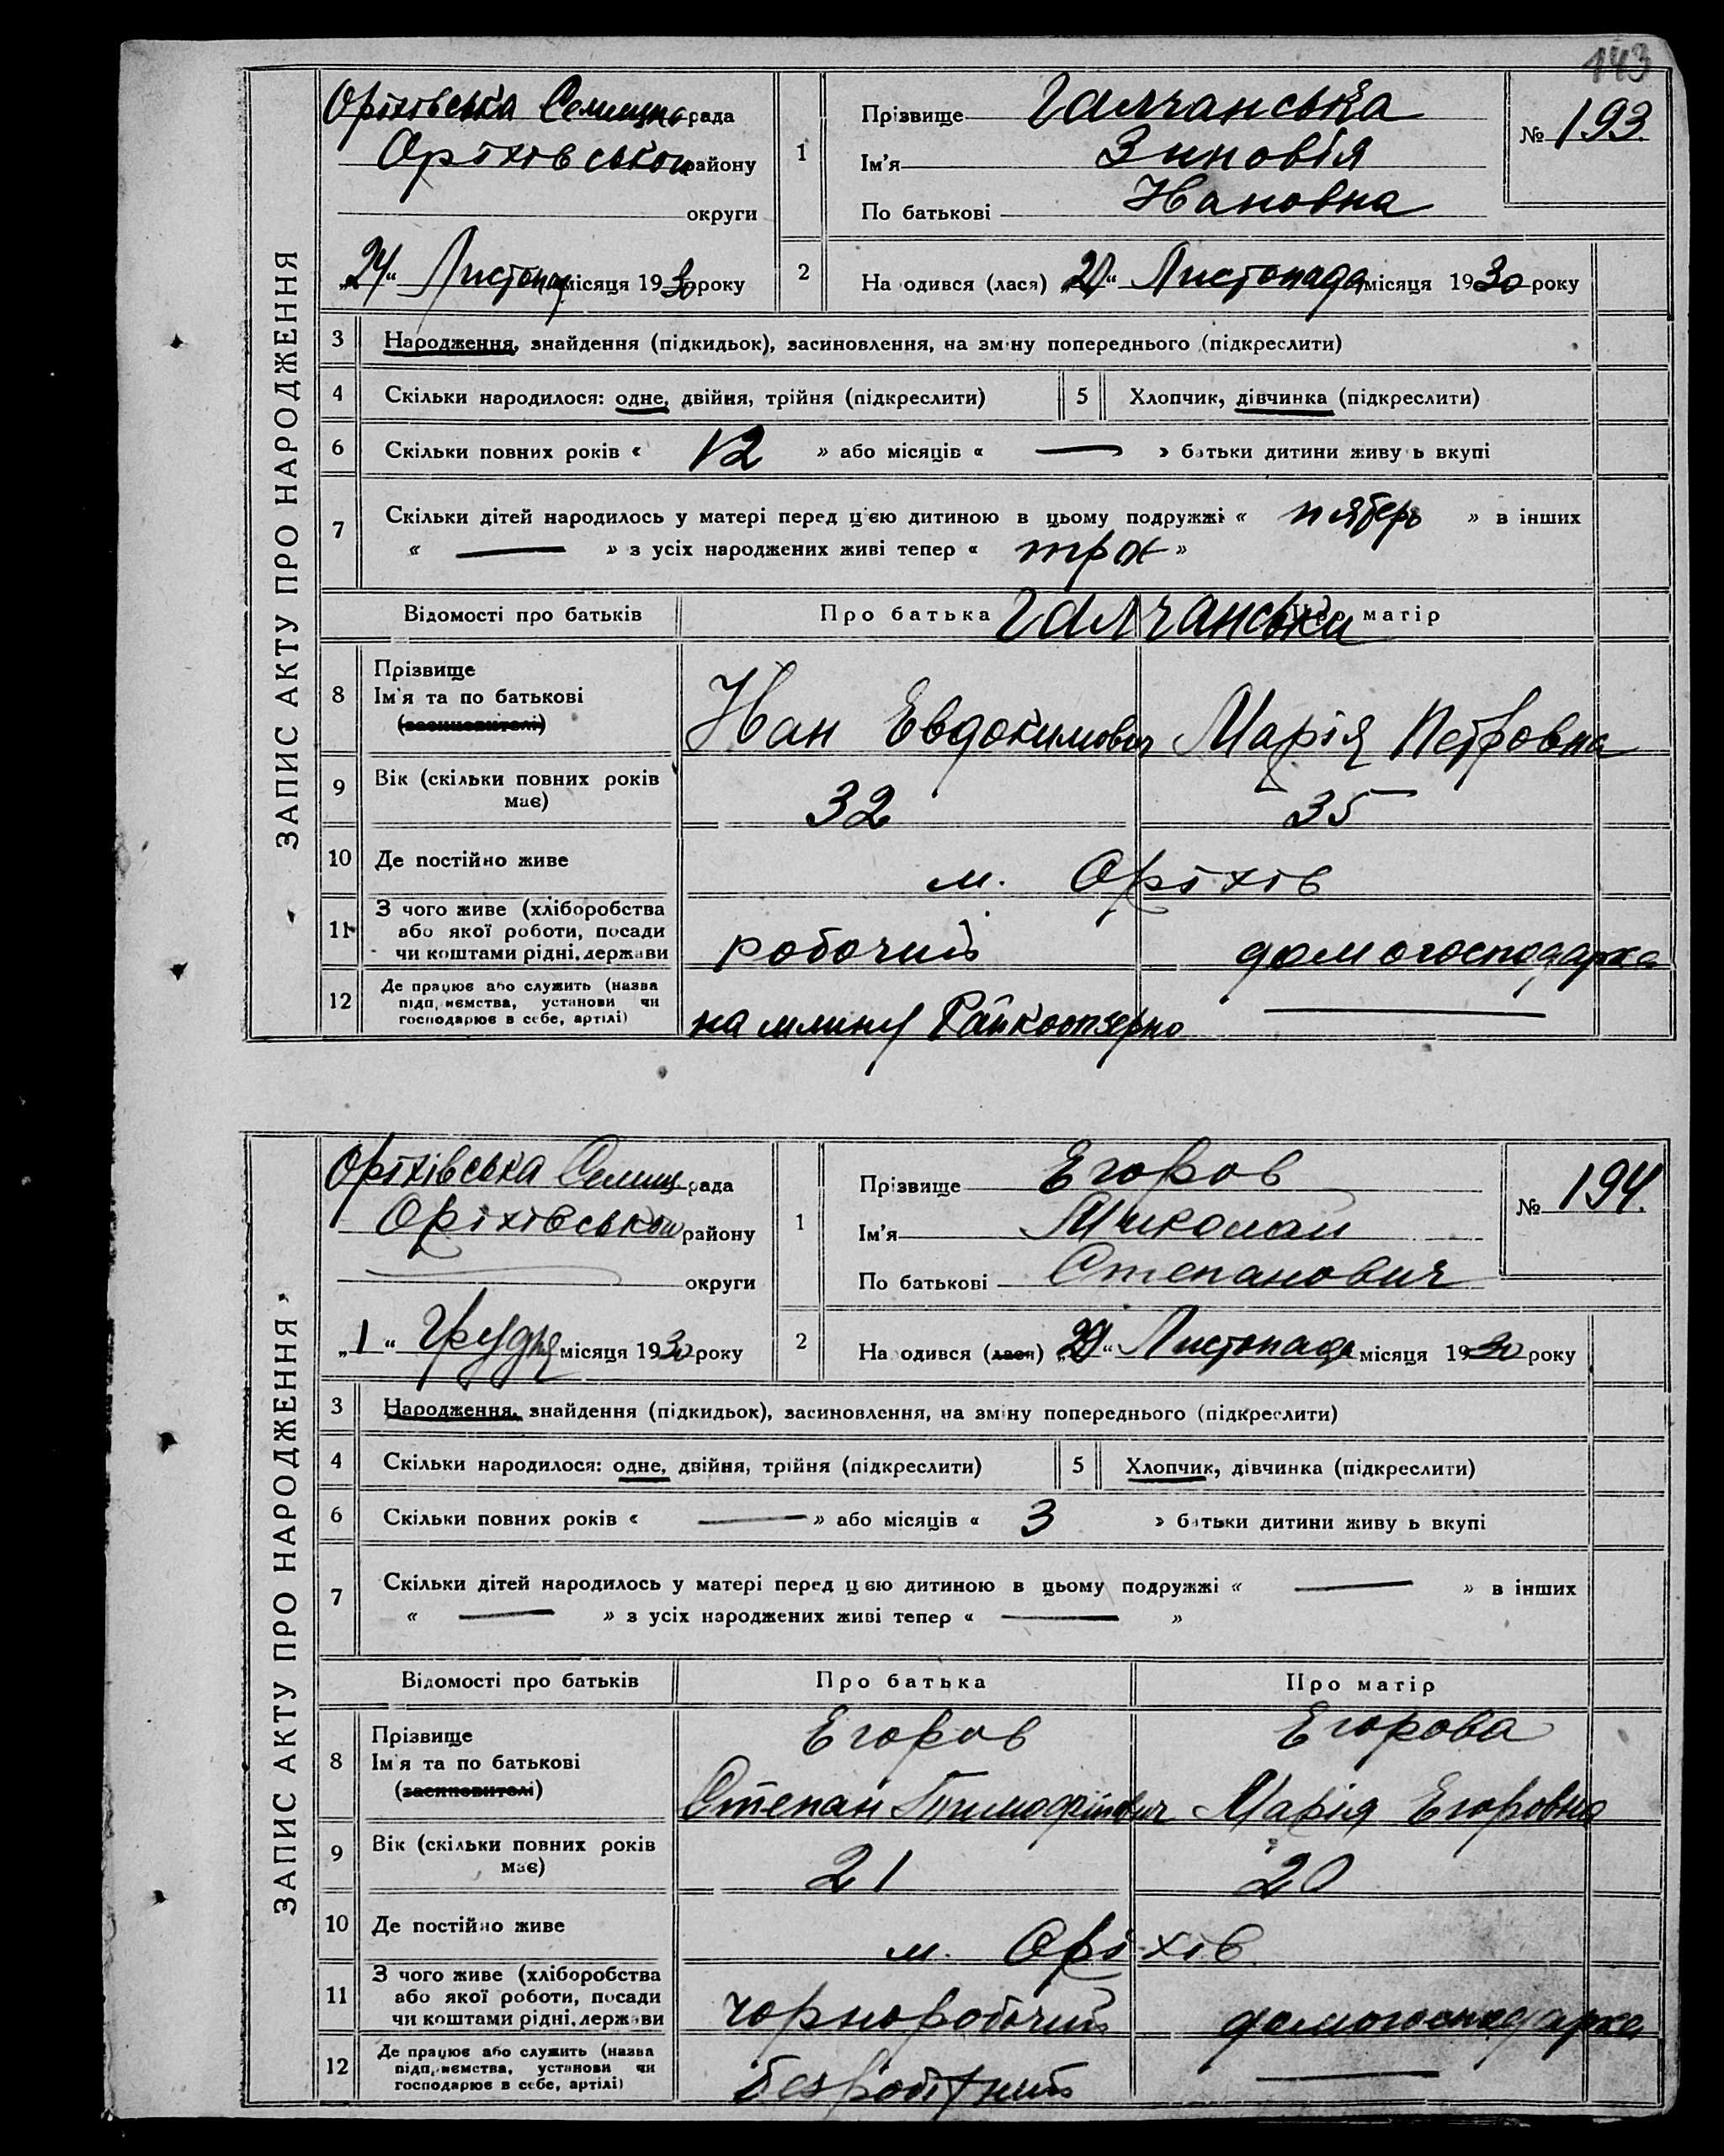 143
ЗАПИС АКТУ ПРО НАРОДЖЕННЯ
Оріхівська Селищна рада
Оріхівського району
округи
„24“ Листопад місяця 1930 року
1 Прізвище Галчанська
Ім'я Зиновія
По батькові Ивановна
№ 193
2 На одився (лася) „ “ Листопада місяця 1930 року
3 Народження, знайдення (підкидьок), засиновлення, на зміну попереднього (підкреслити)
4 Скільки народилося: одне, двійня, трійня (підкреслити) 5 Хлопчик, дівчинка (підкреслити)
6 Скільки повних років « 12 » або місяців « — » батьки дитини живу ь вкупі
7 Скільки дітей народилось у матері перед цією дитиною в цьому подружжі « пятеро » в інших
« — » з усіх народжених живі тепер « троє »
Відомості про батьків Про батька Про матір
Галчанськи
8 Прізвище
Ім'я та по батькові
(засиновителі)
Иван Евдокимович Марія Петровна
9 Вік (скільки повних років
має)
32 35
10 Де постійно живе м. Оріхів
11 З чого живе (хліборобства
або якої роботи, посади
чи коштами рідні, держави
робочий домогосподарка
12 Де працює або служить (назва
підприємства, установи чи
господарює в себе, артілі)
на млину —
ЗАПИС АКТУ ПРО НАРОДЖЕННЯ
Оріхівська Селищ рада
Оріхівського району
округи
„1“ Грудня місяця 1930 року
1 Прізвище Егоров
Ім'я Миколай
По батькові Степанович
№ 194.
2 На одився (лася) „ “ Листопада місяця 1930 року
3 Народження, знайдення (підкидьок), засиновлення, на зміну попереднього (підкреслити)
4 Скільки народилося: одне, двійня, трійня (підкреслити) 5 Хлопчик, дівчинка (підкреслити)
6 Скільки повних років « — » або місяців « 3 » батьки дитини живу ь вкупі
7 Скільки дітей народилось у матері перед цією дитиною в цьому подружжі « — » в інших
« — » з усіх народжених живі тепер « — »
Відомості про батьків Про батька Про матір
8 Прізвище
Ім'я та по батькові
(засиновителі)
Егоров Егорова
Степан Тимофійович Марія Егоровна
9 Вік (скільки повних років
має)
21 20
10 Де постійно живе м. Оріхів
11 З чого живе (хліборобства
або якої роботи, посади
чи коштами рідні, держави
чорноробочий домогосподарка
12 Де працює або служить (назва
підприємства, установи чи
господарює в себе, артілі)
безробітний —